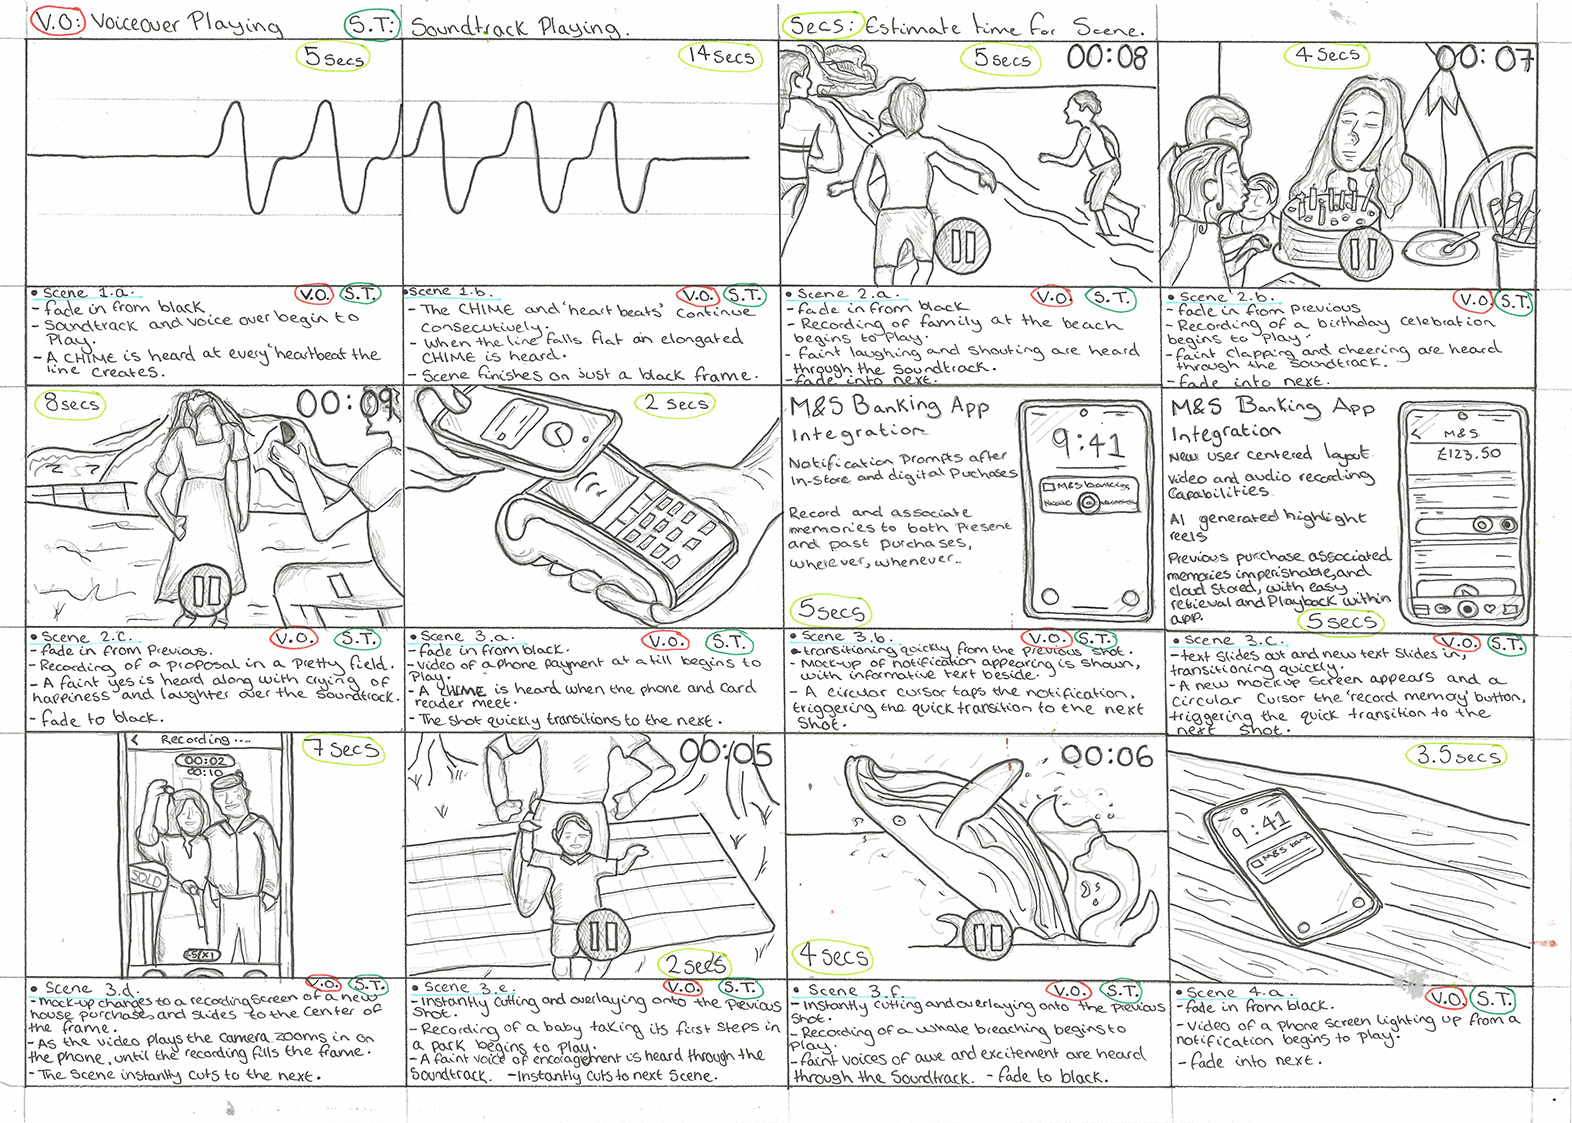 V.O: Voiceover Playing
S.T: Soundtrack Playing.
Secs: Estimate time for Scene.
5secs
14secs
5secs
00:08
4secs
00:07
• Scene 1.a.
V.O. S.T.
- fade in from black
- Soundtrack and voice over begin to
Play.
- A CHIME is heard at every 'heartbeat the
line creates.
• Scene 1.b.
V.O. S.T.
- The CHIME and 'heart beats' continue
consecutively.
- When the line falls flat an elongated
CHIME is heard.
- Scene finishes on just a black frame.
• Scene 2.a.
V.O. S.T.
- fade in from black
- Recording of family at the beach
begins to Play.
- faint laughing and shouting are heard
through the soundtrack.
- fade into next.
• Scene 2.b.
V.O. S.T.
- fade in from previous
- Recording of a birthday celebration
begins to Play.
- faint clapping and cheering are heard
through the soundtrack.
- fade into next.
8secs
00:09
2 secs
M&S Banking App
Integration
Notification Prompts after
In-Store and digital Puchases
Record and associate
memories to both Present
and past purchases,
wherever, whenever..
5secs
9:41
M&S banking
M&S Banking App
Integration
New user centered layout
Video and audio recording
Capabilities.
AI generated highlight
reels
Previous purchase associated
memories imperishable, and
cloud stored, with easy
retrieval and Playback within
app.
5secs
M&S
£123.50
• Scene 2.c.
V.O. S.T.
- fade in from Previous.
- Recording of a proposal in a pretty field.
- A faint yes is heard along with crying of
happiness and laughter over the soundtrack.
- fade to black.
• Scene 3.a.
V.O. S.T.
- fade in from black.
- Video of a phone payment at a till begins to
Play.
- A CHIME is heard when the phone and card
reader meet.
- The shot quickly transitions to the next.
• Scene 3.b.
V.O. S.T.
• transitioning quickly from the previous shot.
- Mock-up of notification appearing is shown,
with informative text beside.
- A circular cursor taps the notification,
triggering the quick transition to the next
shot.
• Scene 3.c.
V.O. S.T.
- text slides out and new text slides in,
transitioning quickly.
- A new mockup screen appears and a
circular cursor the 'record memory' button,
triggering the quick transition to the
next shot.
< Recording....
00:02
00:10
SOLD
.5/X1
7secs
00:05
2secs
00:06
4secs
3.5secs
9:41
M&S bank
• Scene 3.d.
V.O. S.T.
- Mock-up changes to a recording screen of a new
house purchase, and slides to the center of
the frame.
- As the video plays the camera zooms in on
the phone, until the recording fills the frame.
- The scene instantly cuts to the next.
• Scene 3.e.
V.O. S.T.
- Instantly cutting and overlaying onto the previous
shot.
- Recording of a baby taking its first steps in
a park begins to Play.
- A faint voice of encoragement is heard through the
soundtrack. - Instantly cuts to next scene.
• Scene 3.f.
V.O. S.T.
- Instantly cutting and overlaying onto the previous
shot.
- Recording of a whale breaching begins to
Play.
- faint voices of awe and excitement are heard
through the soundtrack. - fade to black.
• Scene 4.a.
V.O. S.T.
- fade in from black.
- Video of a phone screen lighting up from a
notification begins to Play.
- fade into next.